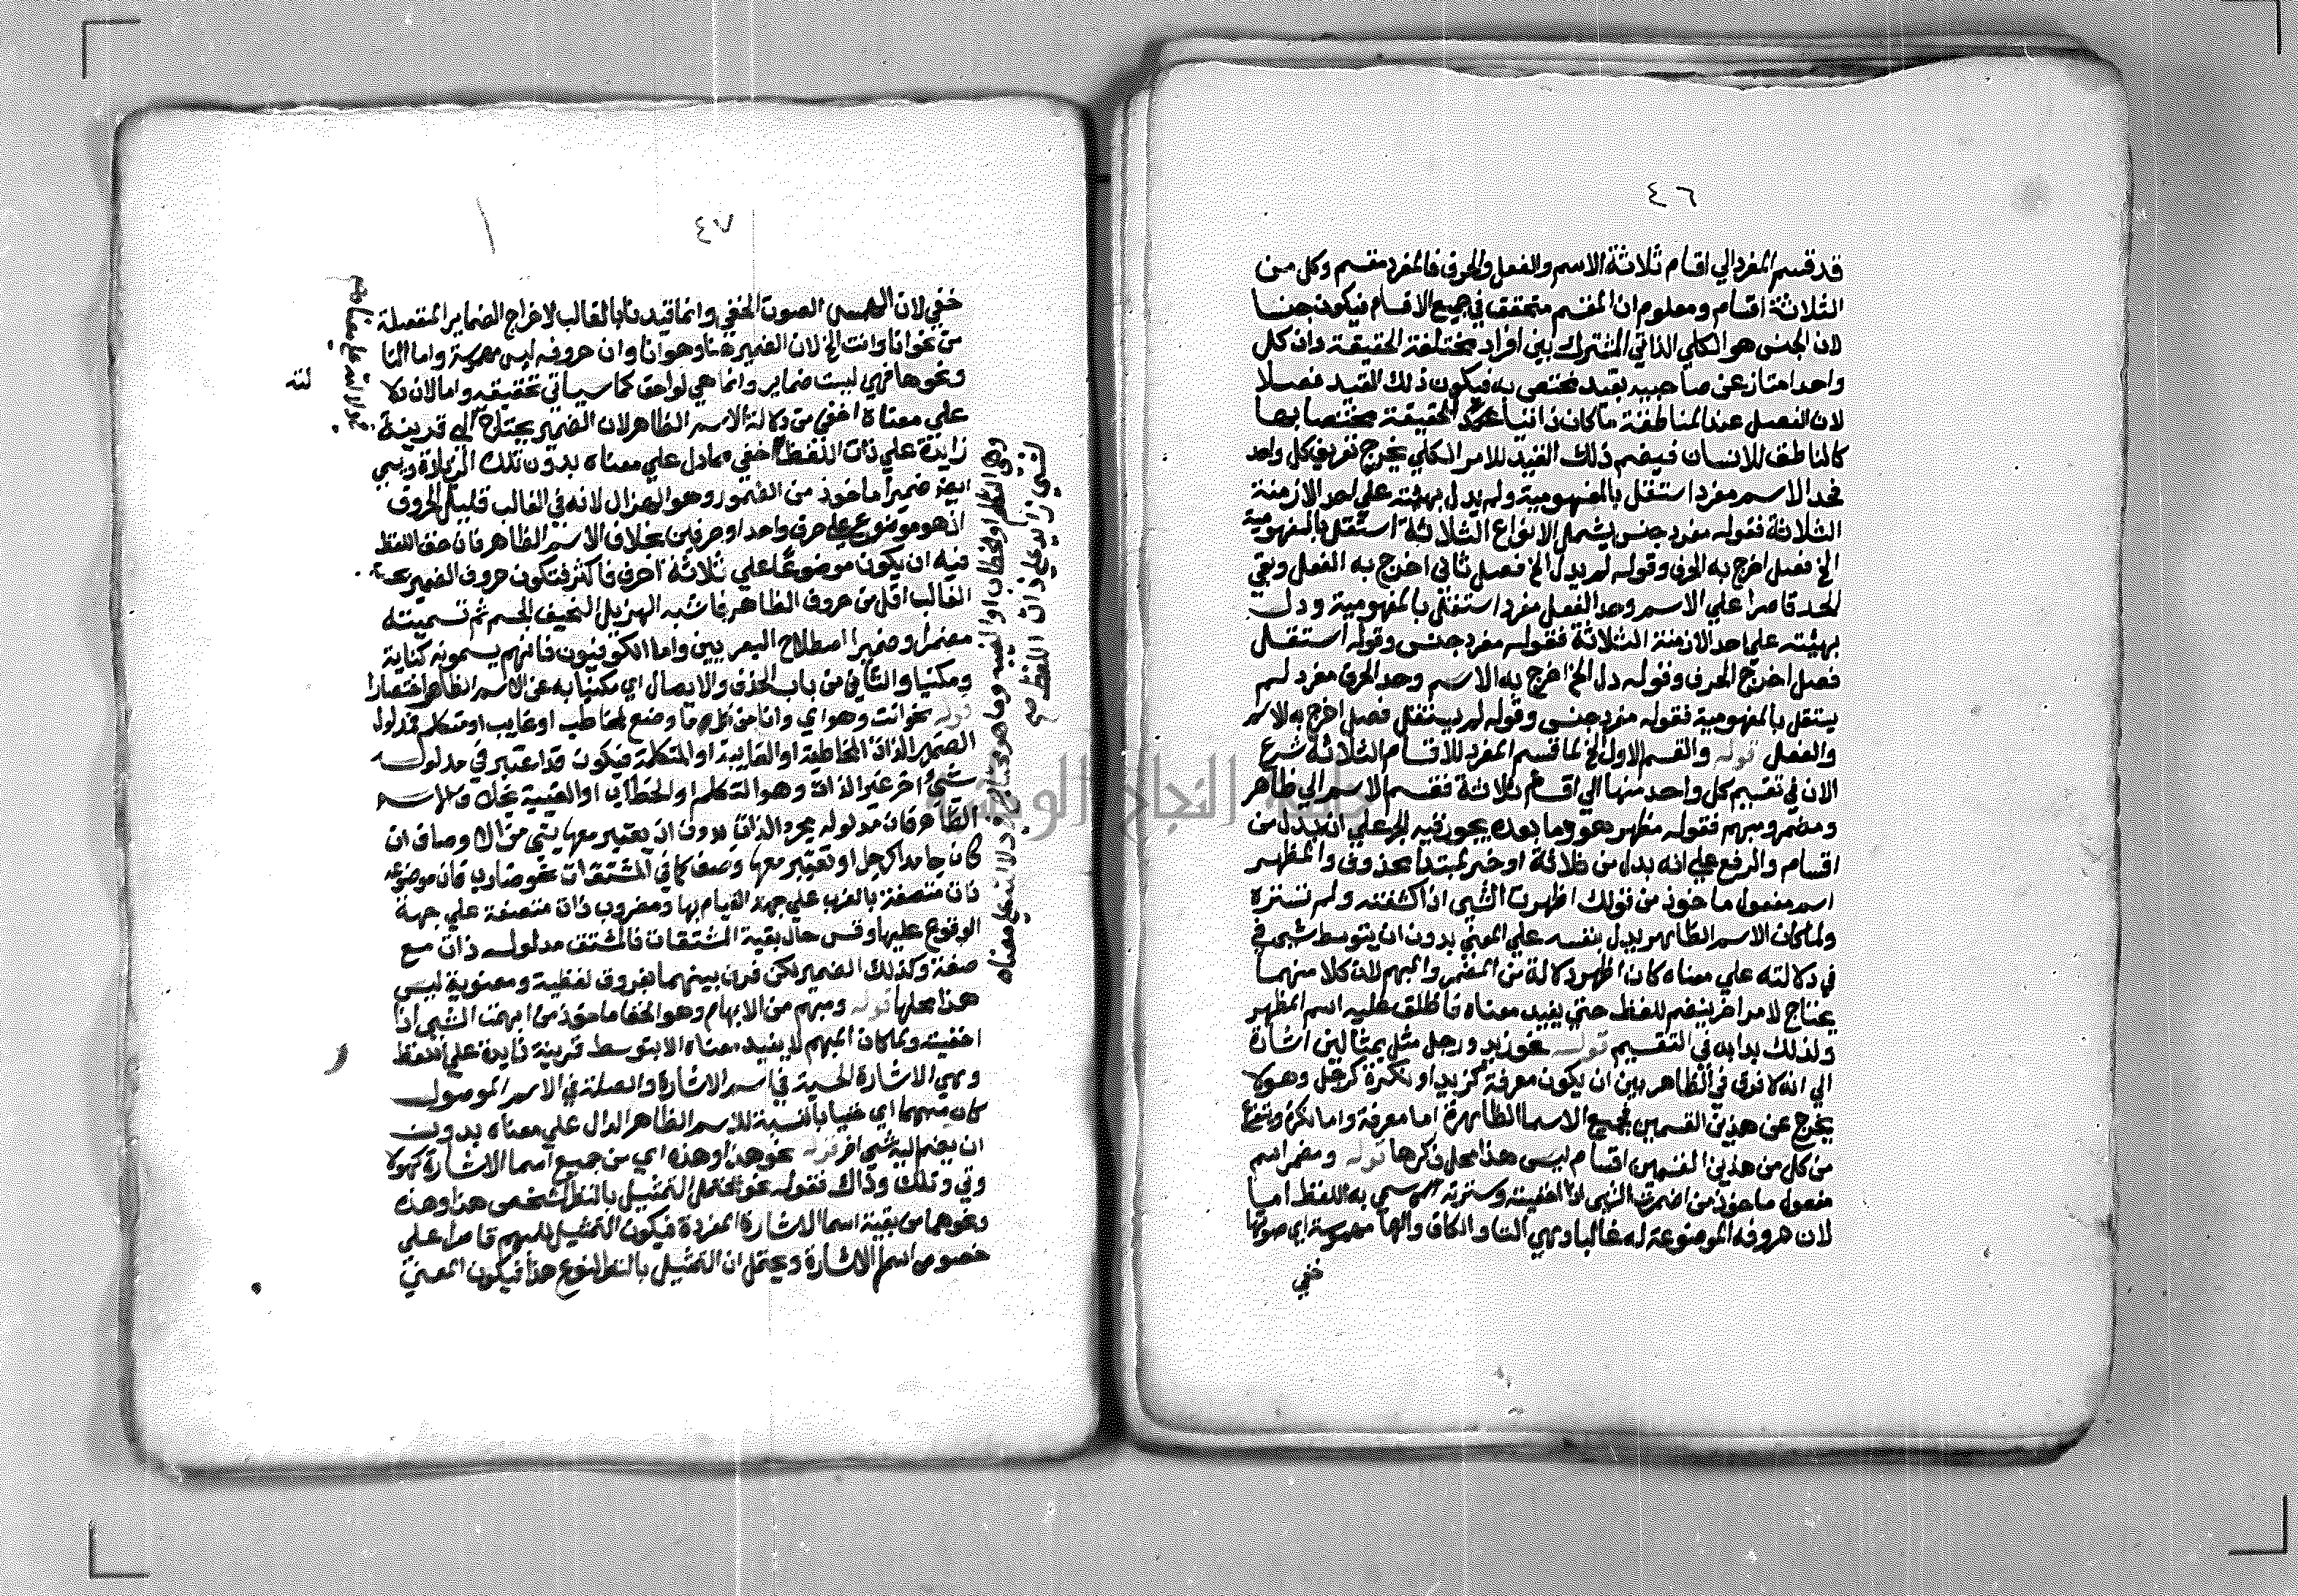 ٤٦
قد قسم المفرد الي اقسام ثلاثة الاسم والفعل والحرف فالمفرد مقسم وكل من
الثلاثة اقسام ومعلوم ان المقسم متحقق في جميع الاقسام فيكون جنسا
لان الجنس هو الكلي الذاتي المشترك بين افراد مختلفة الحقيقة وان كل
واحد امتاز عن صاحبيه بقيد مختص به فيكون ذلك القيد فصلا
لان الفصل عند المناطقة ما كان ذاتيا الحقيقة مختصا بها
كالناطق للانسان فبضم ذلك القيد للامر الكلي يخرج تعريف كل واحد
فحد الاسم مفرد استقل بالمفهومية ولم يدل بهيئته علي احد الازمنة
الثلاثة فقوله مفرد جنس يشمل الانواع الثلاثة استقل بالمفهومية
الخ فصل اخرج به الحرف وقوله لم يدل الخ فصل ثاني اخرج به الفعل وبقي
الحد قاصرا علي الاسم وحد الفعل مفرد استقل بالمفهومية ودل
بهيئته علي احد الازمنة الثلاثة فقوله مفرد جنس وقوله استقل
فصل اخرج الحرف وقوله دل الخ اخرج به الاسم وحد الحرف مفرد لم
يستقل بالمفهومية فقوله مفرد جنس وقوله لم يستقل فصل اخرج به الاسم
والفعل قوله والقسم الاول الخ لما قسم المفرد للاقسام الثلاثة شرع
الان في تقسيم كل واحد منها الي اقسام ثلاثة فقسم الاسم الي ظاهر
ومضمر ومبهم فقوله مظهر هو وما بعده يجوز فيه الجر علي انه بدل من
اقسام والرفع علي انه بدل من ثلاثة او خبر لمبتدا محذوف والمظهر
اسم مفعول ماخوذ من قولك اظهرت الشي اذا كشفته ولم تستره
ولما كان الاسم الظاهر يدل بنفسه علي المعني بدون ان يتوسط شي في
في دلالته علي معناه كان اظهر دلالة من المضمر والمبهم لان كلا منهما
يحتاج لامر اخر ينضم للفظ حتي يفيد معناه فاطلق عليه اسم المظهر
ولذلك بدا به في التقسيم قوله نحو زيد ورجل مثل بمثالين اشارة
الي انه لا فرق في الظاهر بين ان يكون معرفة كزيد او نكرة كرجل وهو لا
يخرج عن هذين القسمين فجميع الاسما الظاهرة اما معرفة واما نكرة ويتفرع
من كل من هذين القسمين اقسام ليس هذا محل ذكرها قوله ومضمر اسم
مفعول ماخوذ من اضمرت الشي اذا اخفيته وسترته سمي به اللفظ اما
لان حروفه الموضوعة له غالبا وهي التا والكاف والها مهموسة اي صوتها
خفي
٤٧
خفي لان الهمس الصوت الخفي وانما قيدنا بالغالب لاخراج الضماير المنفصلة
من نحو انا وانت الخ لان الضمير هنا وهو انا وان حروفه ليس مهموسة واما التا
ونحوها فهي ليست ضماير وانما هي لواحق كما سياتي تحقيقه واما لان دلا
لته
علي معناه اخفي من دلالة الاسم الظاهر لان الضمير يحتاج الي قرينة
زايدة علي ذات اللفظ اخفي مما دل علي معناه بدون تلك الزيادة وسمي
ايضا ضميرا ماخوذ من الضمور وهو الهزال لانه في الغالب قليل الحروف
اذ هو موضوع علي حرف واحد او حرفين بخلاف الاسم الظاهر فان حق اللفظ
فيه ان يكون موضوعا علي ثلاثة احرف فاكثر فتكون حروف الضمير
الغالب اقل من حروف الظاهر فاشبه الهزيل النحيف الجسم ثم تسميته
مضمرا وضميرا اصطلاح البصريين واما الكوفيون فانهم يسمونه كناية
ومكنيا والثاني من باب الحذف والايصال اي مكنيا به عن الاسم الظاهر اختصارا
قوله نحو انت وهو اي وانا من كل ما وضع لمخاطب او غايب او متكلم فمدلول
الضمير الذات المخاطبة او الغايبة او المتكلمة فيكون قد اعتبر في مدلوله
شي اخر غير الذات وهو التكلم او الخطاب او الغيبة بخلاف الاسم
الظاهر فان مدلوله مجرد الذات بدون ان يعتبر معها شي من الاوصاف ان
كان جامدا كرجل او يعتبر معها وصف كما في المشتقات نحو ضارب فان موضوعه
ذات متصفة بالضرب علي جهة القيام بها ومضروب ذات متصفة علي جهة
الوقوع عليها وقس حال بقية المشتقات فالمشتق مدلوله ذات مع
صفة وكذلك الضمير لكن فرق بينهما بفروق لفظية ومعنوية ليس
هذا محلها قوله ومبهم من الابهام وهو الخفا ماخوذ من ابهمت الشي اذا
اخفيته ولما كان المبهم لا يفيد معناه الا بتوسط قرينة زايدة علي اللفظ
وهي الاشارة الحسية في اسم الاشارة والصلة في الاسم الموصول
كان مبهما اي خفيا بالنسبة للاسم الظاهر الدال علي معناه بدون
ان يضم اليه شي اخر قوله نحو هذا وهذه اي من جميع اسما الاشارة كهولا
وتي وتلك وذاك فقوله نحو يحتمل التمثيل بالنظر لشخص هذا وهذه
ونحوهما من بقية اسما الاشارة المفردة فيكون التمثيل للمبهم قاصرا علي
خصوص اسم الاشارة ويحتمل ان التمثيل بالنظر لنوع هذا فيكون المعني
وهو التكلم او الخطاب او الغيبة وما هو محتاج في دلالته علي معناه
لشي زايد علي ذات اللفظ صح
جامعة النجاح الوطنية